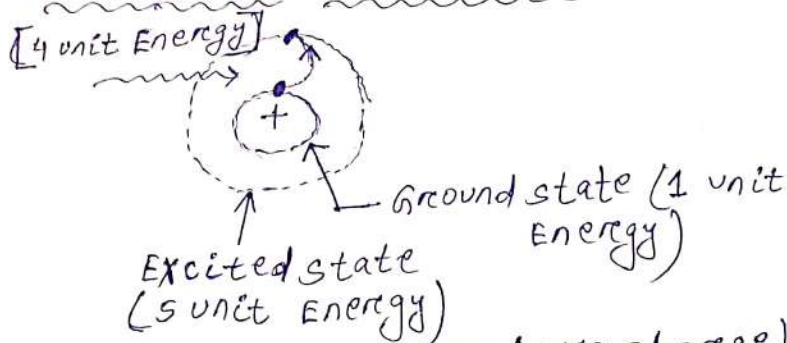 [4 unit Energy]
+
Ground state (1 unit
Energy)
Excited state
(5 unit Energy)